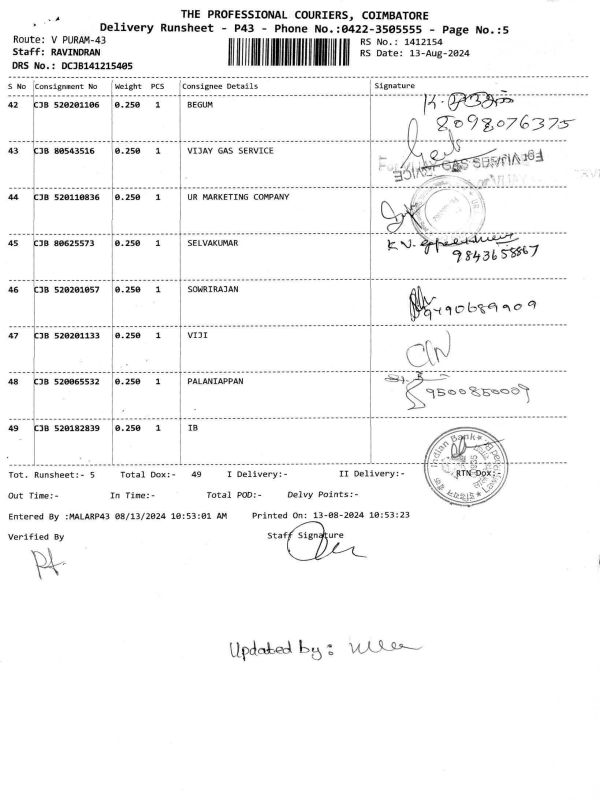 THE PROFESSIONAL COURIERS, COIMBATORE
Delivery Runsheet - P43 - Phone No.:0422-3505555 - Page No.:5
Route: V PURAM-43 RS No.: 1412154
Staff: RAVINDRAN RS Date: 13-Aug-2024
DRS No.: DCJB141215405
S No Consignment No Weight PCS Consignee Details Signature
42 CJB 520201106 0.250 1 BEGUM
8098076375
43 CJB 80543516 0.250 1 VIJAY GAS SERVICE
For VIJAY GAS SERVICE
44 CJB 520110836 0.250 1 UR MARKETING COMPANY
45 CJB 80625573 0.250 1 SELVAKUMAR
9843658867
46 CJB 520201057 0.250 1 SOWRIRAJAN
9490689909
47 CJB 520201133 0.250 1 VIJI
48 CJB 520065532 0.250 1 PALANIAPPAN
9500850009
49 CJB 520182839 0.250 1 IB
Indian Bank
Tot. Runsheet:- 5 Total Dox:- 49 I Delivery:- II Delivery:- RTN Dox:-
Out Time:- In Time:- Total POD:- Delvy Points:-
Entered By :MALARP43 08/13/2024 10:53:01 AM Printed On: 13-08-2024 10:53:23
Verified By Staff Signature
Updated by: